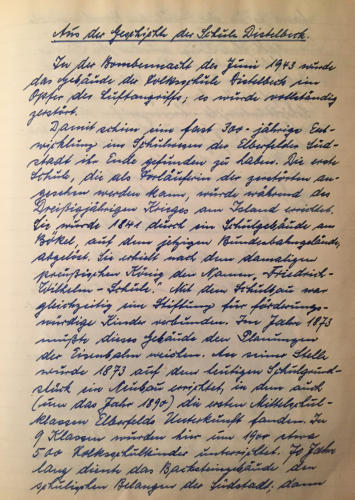 Aus der Geschichte der Schule Distelbeck.
In der Bombennacht des Juni 1943 wurde
das Gebäude der Volksschule Distelbeck ein
Opfer des Luftangriffs; es wurde vollständig
zerstört.
Damit schien eine fast 300-jährige Ent-
wicklung im Schulwesen der Elberfelder Süd-
stadt ihr Ende gefunden zu haben. Die erste
Schule, die als Vorläuferin der zerstörten an-
gesehen werden kann, wurde während des
Dreißigjährigen Krieges am Island errichtet.
Sie wurde 1841 durch ein Schulgebäude am
Bökel, auf dem jetzigen Bundesbahngelände,
abgelöst. Sie erhielt nach dem damaligen
preußischen König den Namen „Friedrich-
Wilhelm-Schule." Mit dem Schulbau war
gleichzeitig eine Stiftung für förderungs-
würdige Kinder verbunden. Im Jahre 1873
mußte dieses Gebäude den Planungen
der Eisenbahn weichen. An seiner Stelle
wurde 1873 auf dem heutigen Schulgrund-
stück ein Neubau errichtet, in dem auch
(um das Jahr 1890) die ersten Mittelschul-
klassen Elberfelds Unterkunft fanden. In
9 Klassen wurden hier um 1900 etwa
500 Volksschulkinder unterrichtet. 70 Jahre
lang diente das Backsteingebäude den
schulischen Belangen der Südstadt, dann